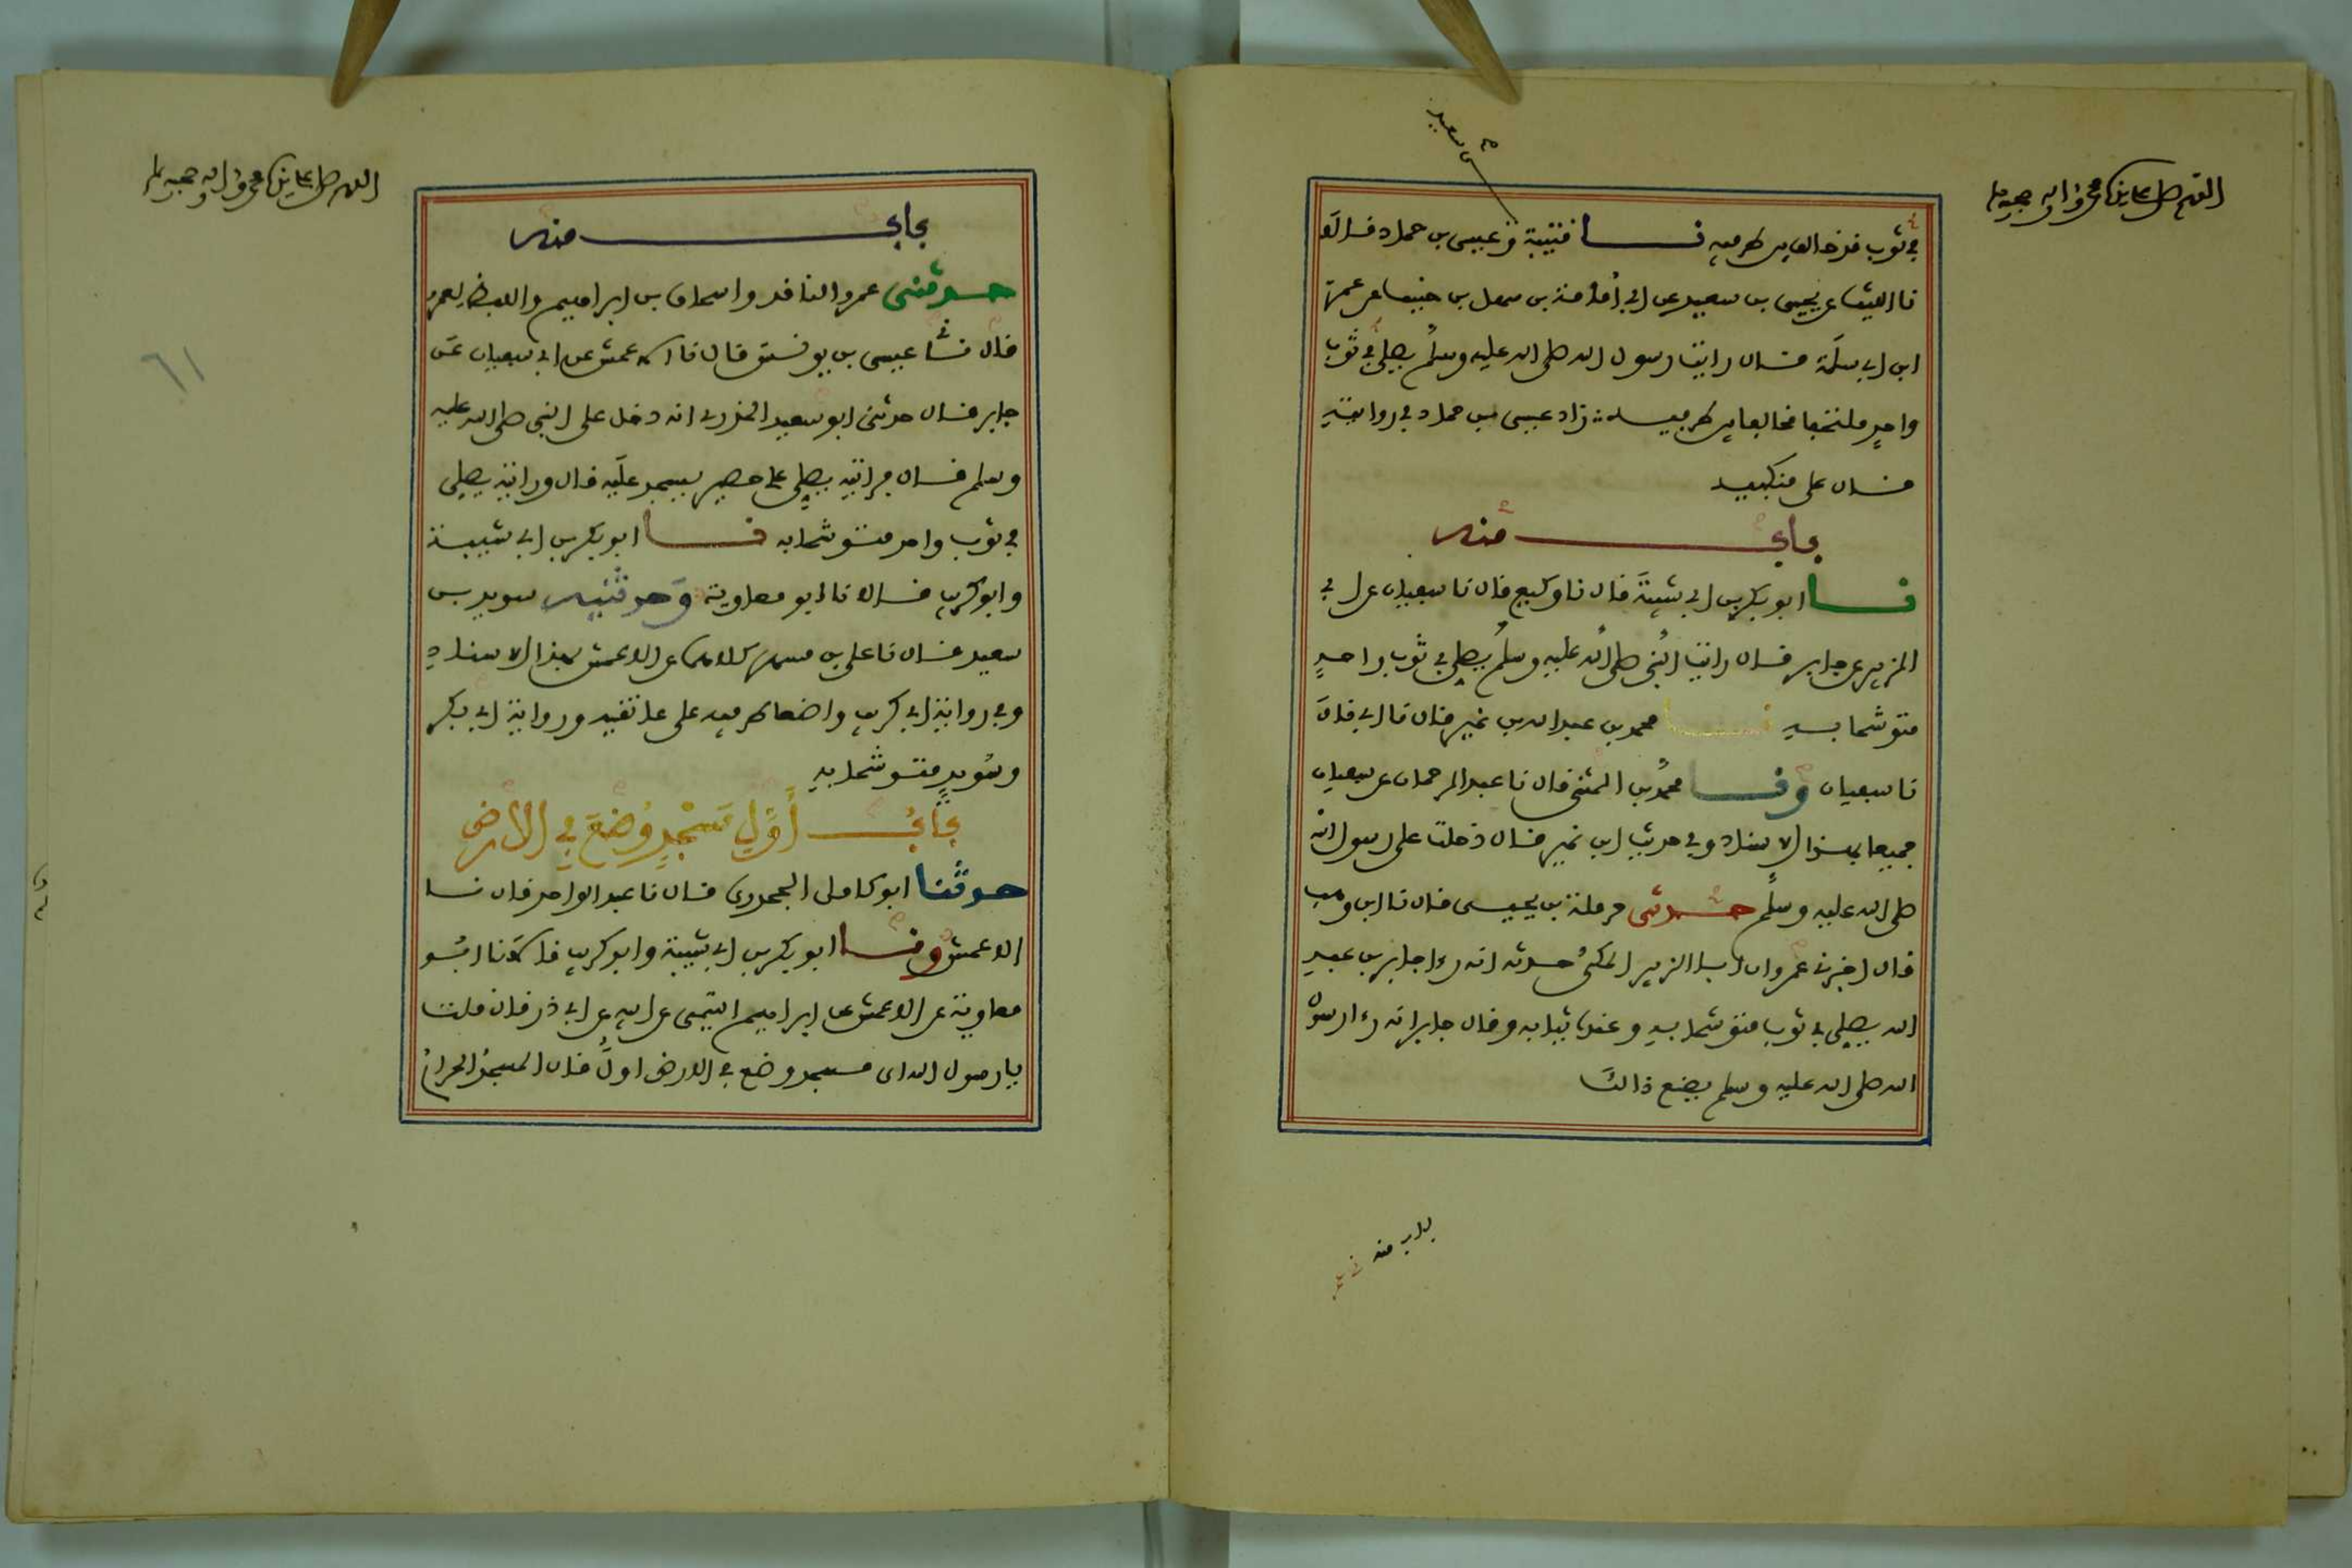 اللهم صل على سيدنا محمد وءاله وصحبه وسلم
بن سعيد
في ثوب قد خالف بين طرفيه نا قتيبة وعيسى بن حماد قالا
نا الليث عن يحيى بن سعيد عن ابي أمامة بن سهل بن حنيف عن عمر
ابن ابي سلمة قال رايت رسول الله صلى الله عليه وسلم يصلي في ثوب
واحد ملتحفا مخالفا بين طرفيه زاد عيسى بن حماد في روايته
قال على منكبيه
باب منه
نا ابو بكر بن ابي شيبة قال نا وكيع قال نا سفيان عن ابي
الزبير عن جابر قال رايت النبي صلى الله عليه وسلم يصلي في ثوب واحد
متوشحا به نا محمد بن عبد الله بن نمير قال نا ابي قال
نا سفيان ونا محمد بن المثنى قال نا عبد الرحمان عن سفيان
جميعا بهذا الاسناد وفي حديث ابن نمير قال دخلت على رسول الله
صلى الله عليه وسلم حدثني حرملة بن يحيى قال نا ابن وهب
قال اخبرني عمرو ان ابا الزبير المكي حدثه انه رءا جابر بن عبد
الله يصلي في ثوب متوشحا به وعنده ثيابه وقال جابر انه رءا رسول
الله صلى الله عليه وسلم يصنع ذالك
باب منه
اللهم صل على سيدنا محمد وءاله وصحبه وسلم
باب منه
حدثني عمرو الناقد واسحاق بن ابراهيم واللفظ لعمرو
قال نا عيسى بن يونس قال نا الاعمش عن ابي سفيان عن
جابر قال حدثني ابو سعيد الخدري انه دخل على النبي صلى الله عليه
وسلم قال فرايته يصلي على حصير يسجد عليه قال ورايته يصلي
في ثوب واحد متوشحا به نا ابو بكر بن ابي شيبة
وابو كريب قالا نا ابو معاوية وحدثنيه سويد بن
سعيد قال نا علي بن مسهر كلاهما عن الاعمش بهذا الاسناد
وفي رواية ابي كريب واضعا طرفيه على عاتقيه ورواية ابي بكر
وسويد متوشحا به
باب أول مسجد وضع في الارض
حدثنا ابو كامل الجحدري قال نا عبد الواحد قال نا
الاعمش ونا ابو بكر بن ابي شيبة وابو كريب قالا نا ابو
معاوية عن الاعمش عن ابراهيم التيمي عن ابيه عن ابي ذر قال قلت
يا رسول الله اى مسجد وضع في الارض اول قال المسجد الحرام
٦١